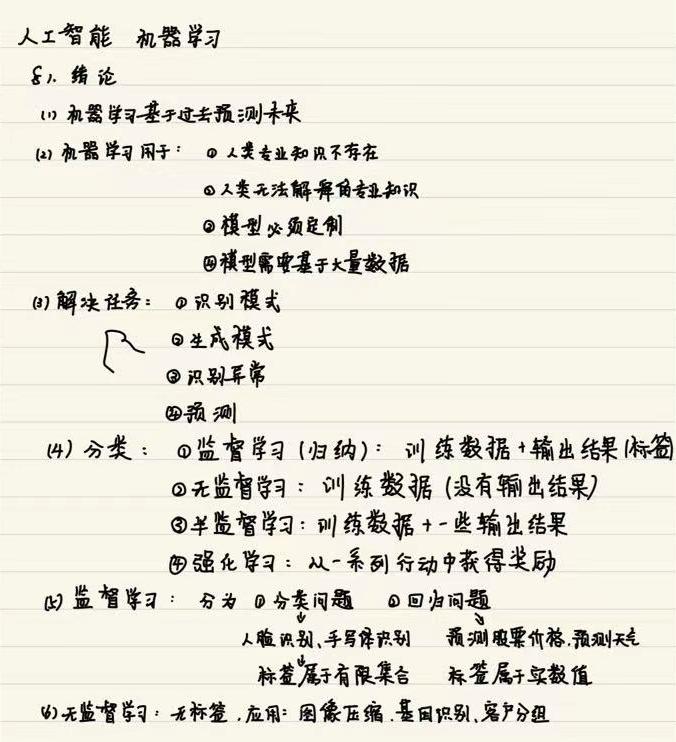 人工智能 机器学习
§1. 绪论
(1) 机器学习基于过去预测未来
(2) 机器学习用于： ① 人类专业知识不存在
②人类无法解释的专业知识
③模型必须定制
④模型需要基于大量数据
(3) 解决任务： ①识别模式
②生成模式
③识别异常
④预测
(4) 分类： ①监督学习（归纳）： 训练数据+输出结果(标签
②无监督学习： 训练数据（没有输出结果）
③半监督学习：训练数据+一些输出结果
④强化学习：从一系列行动中获得奖励
(5) 监督学习： 分为 ①分类问题 ②回归问题
人脸识别、手写体识别 预测股票价格.预测天气
标签属于有限集合 标签属于实数值
(6)无监督学习：无标签.应用：图像压缩.基因识别、客户分组